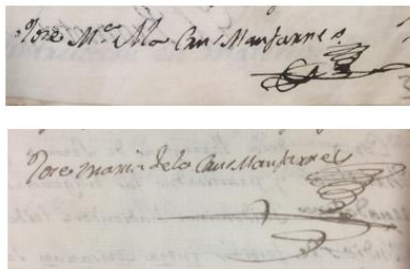 Jose Mª de la Cruz Manjarres
Jose maria dela Cruz Manjarres